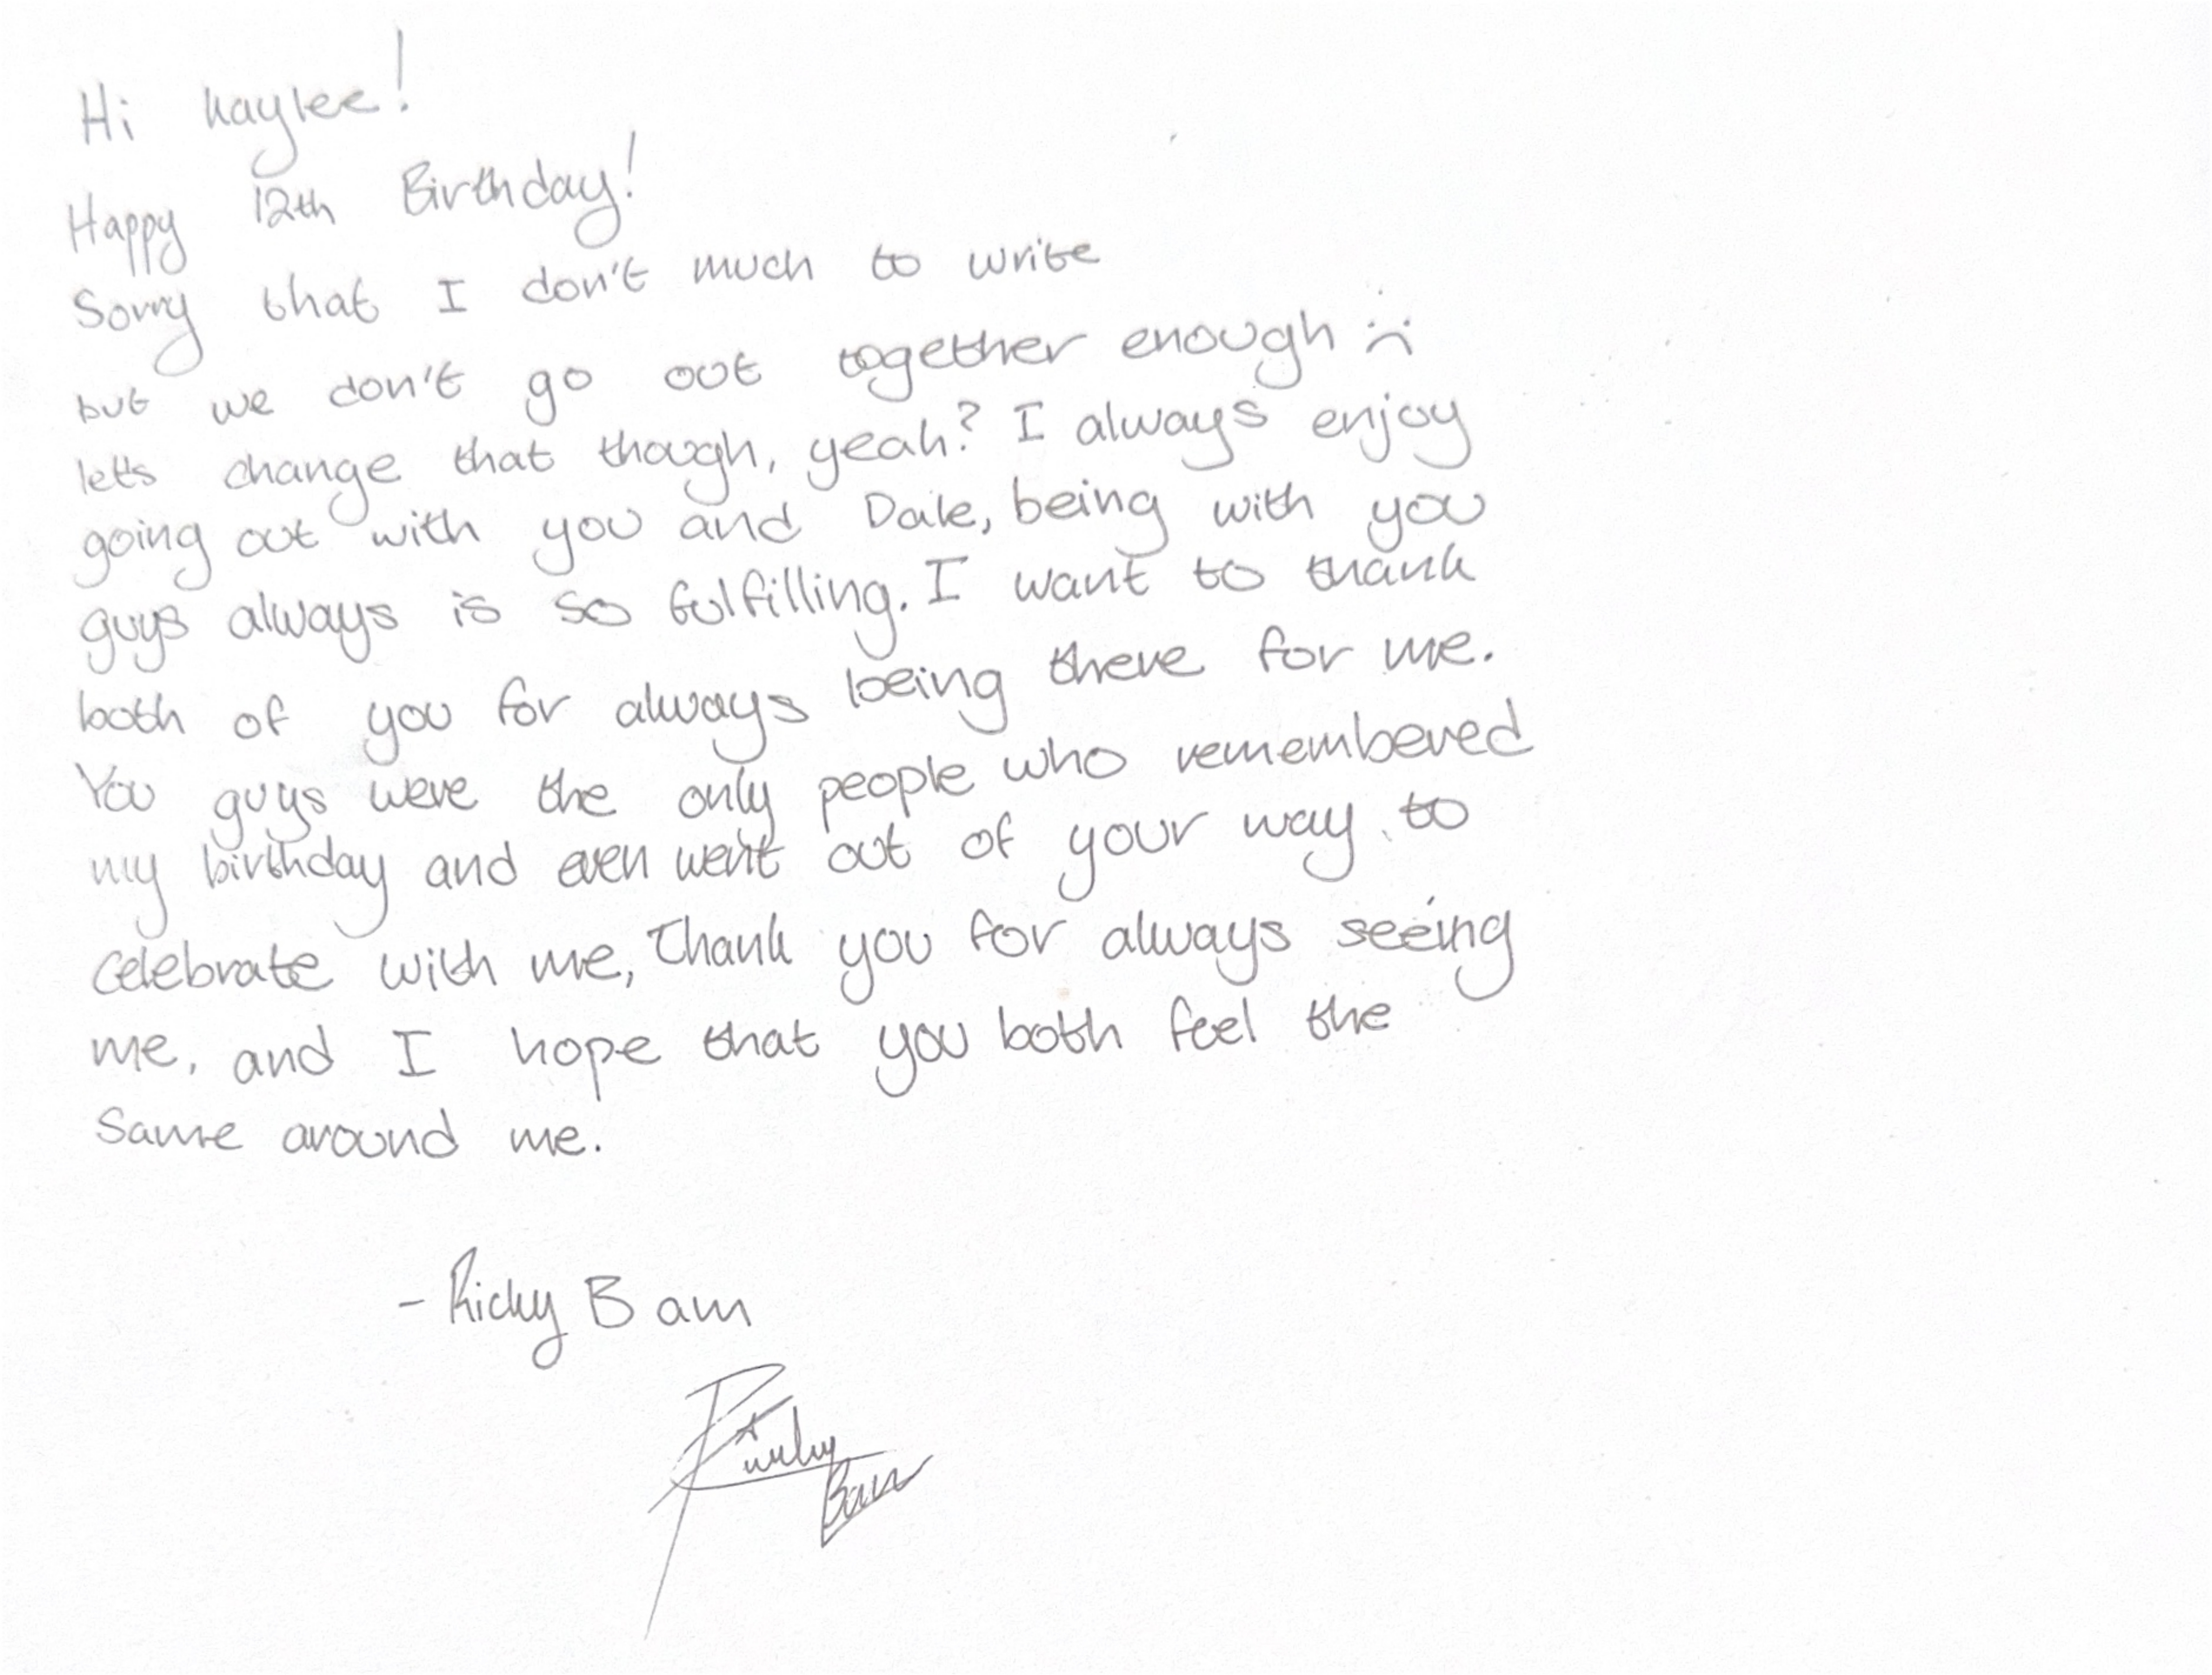 Hi kaylee!
Happy 12th Birthday!
Sorry that I don't much to write
but we don't go out together enough :(
let's change that though, yeah? I always enjoy
going out with you and Dale, being with you
guys always is so fulfilling. I want to thank
both of you for always being there for me.
You guys were the only people who remembered
my birthday and even went out of your way to
celebrate with me, Thank you for always seeing
me, and I hope that you both feel the
same around me.
- Ricky Bam
Ricky
Bam